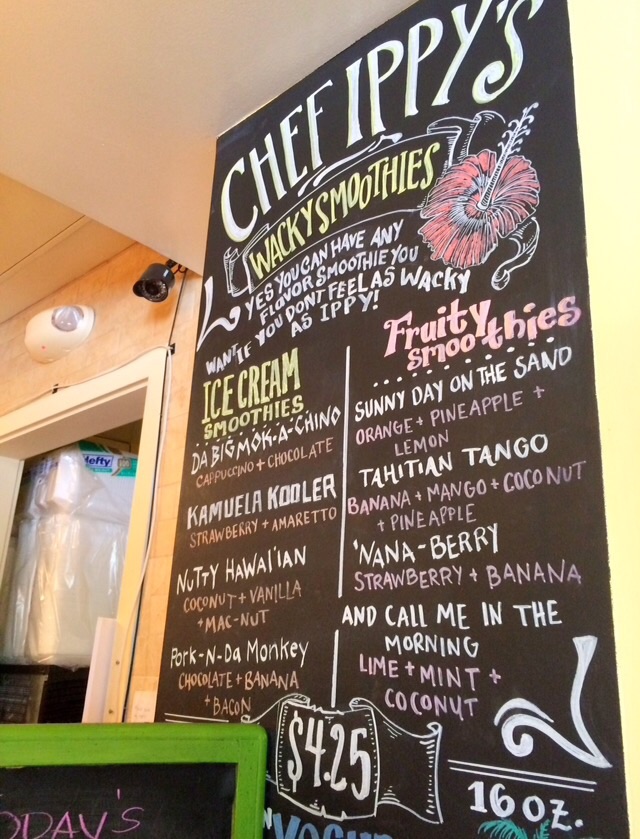 CHEF IPPY'S
WACKY SMOOTHIES
YES YOU CAN HAVE ANY
FLAVOR SMOOTHIE YOU
WANT IF YOU DONT FEEL AS WACKY
AS IPPY!
ICE CREAM
SMOOTHIES
DA BIG MOK-A-CHINO
CAPPUCCINO + CHOCOLATE
KAMUELA KOOLER
STRAWBERRY + AMARETTO
NUTTY HAWAI'IAN
COCONUT + VANILLA
+ MAC-NUT
Pork-N-Da Monkey
CHOCOLATE + BANANA
+ BACON
Fruity
smoothies
SUNNY DAY ON THE SAND
ORANGE + PINEAPPLE +
LEMON
TAHITIAN TANGO
BANANA + MANGO + COCONUT
+ PINEAPPLE
'NANA-BERRY
STRAWBERRY + BANANA
AND CALL ME IN THE
MORNING
LIME + MINT +
COCONUT
$4.25
16 oz.
Hefty